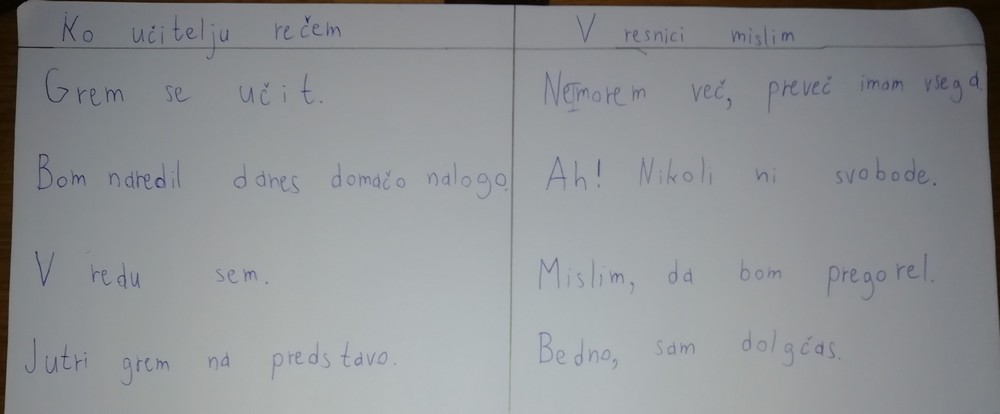 Ko učitelju rečem V resnici mislim
Grem se učit. Ne morem več, preveč imam vsega.
Bom naredil danes domačo nalogo. Ah! Nikoli ni svobode.
V redu sem. Mislim, da bom pregorel.
Jutri grem na predstavo. Bedno, sam dolgčas.